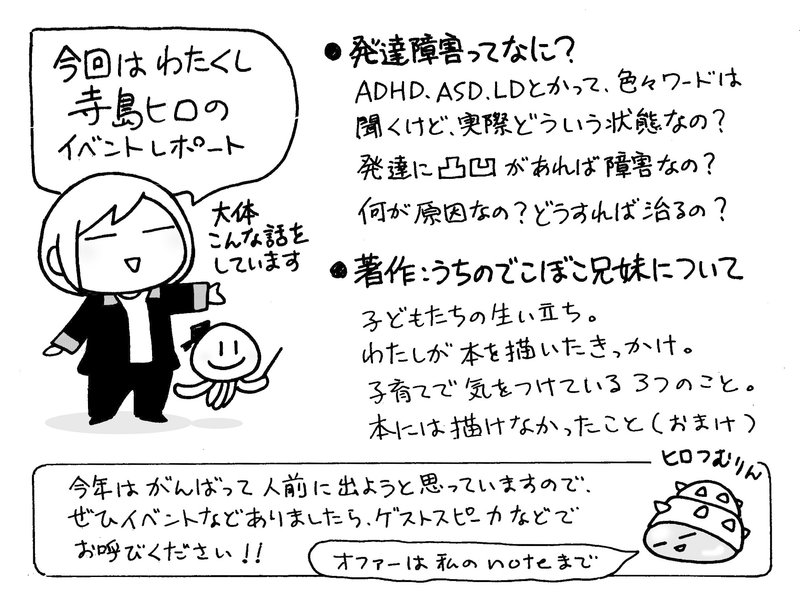 今回は わたくし
寺島ヒロの
イベントレポート
大体
こんな話を
しています
● 発達障害ってなに?
ADHD、ASD、LDとかって、色々ワードは
聞くけど、実際どういう状態なの?
発達に凸凹があれば障害なの?
何が原因なの?どうすれば治るの?
● 著作:うちのでこぼこ兄妹について
子どもたちの生い立ち。
わたしが本を描いたきっかけ。
子育てで気をつけている3つのこと。
本には描けなかったこと(おまけ)
今年はがんばって人前に出ようと思っていますので、
ぜひイベントなどありましたら、ゲストスピーカなどで
お呼びください!!
ヒロつむりん
オファーは私のnoteまで